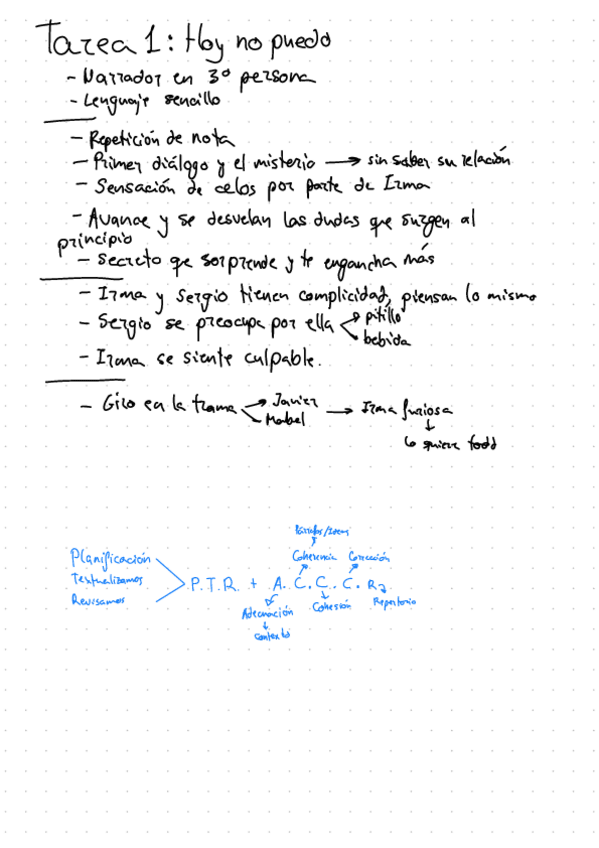 Tarea 1: Hoy no puedo
- Narrador en 3º persona
- Lenguaje sencillo
- Repetición de nota
- Primer diálogo y el misterio → sin saber su relación
- Sensación de celos por parte de Irma
- Avance y se desvelan las dudas que surgen al
principio
- Secreto que sorprende y te engancha más
- Irma y Sergio tienen complicidad, piensan lo mismo
- Sergio se preocupa por ella
pitillo
bebida
- Irma se siente culpable.
- Giro en la trama
Javier
Mabel
→ Irma furiosa
↓
lo quiere todo
Párrafos/Ideas
Coherencia Corrección
Planificación
Textualizamos
Revisamos
P.T.R. + A. C. C. C. R
Adecuación
Cohesión
Repertorio
↓
contexto